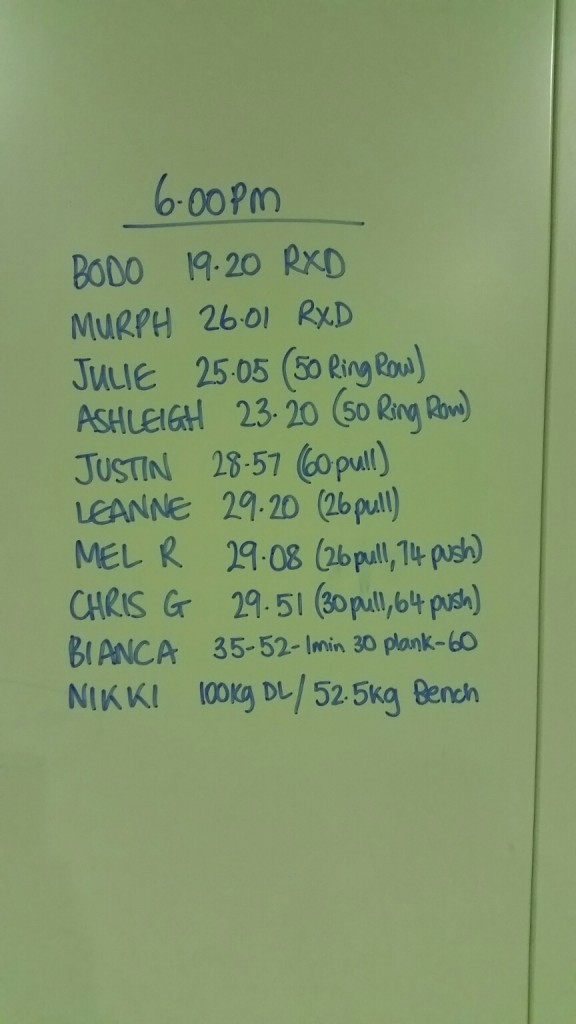 6.00pm
BODO 19.20 RXD
MURPH 26.01 RXD
JULIE 25.05 (50 Ring Row)
ASHLEIGH 23.20 (50 Ring Row)
JUSTIN 28.57 (60 pull)
LEANNE 29.20 (26 pull)
MEL R 29.08 (26 pull, 74 push)
CHRIS G 29.51 (30 pull, 64 push)
BIANCA 35-52-1min 30 plank-60
NIKKI 100kg DL/ 52.5kg Bench